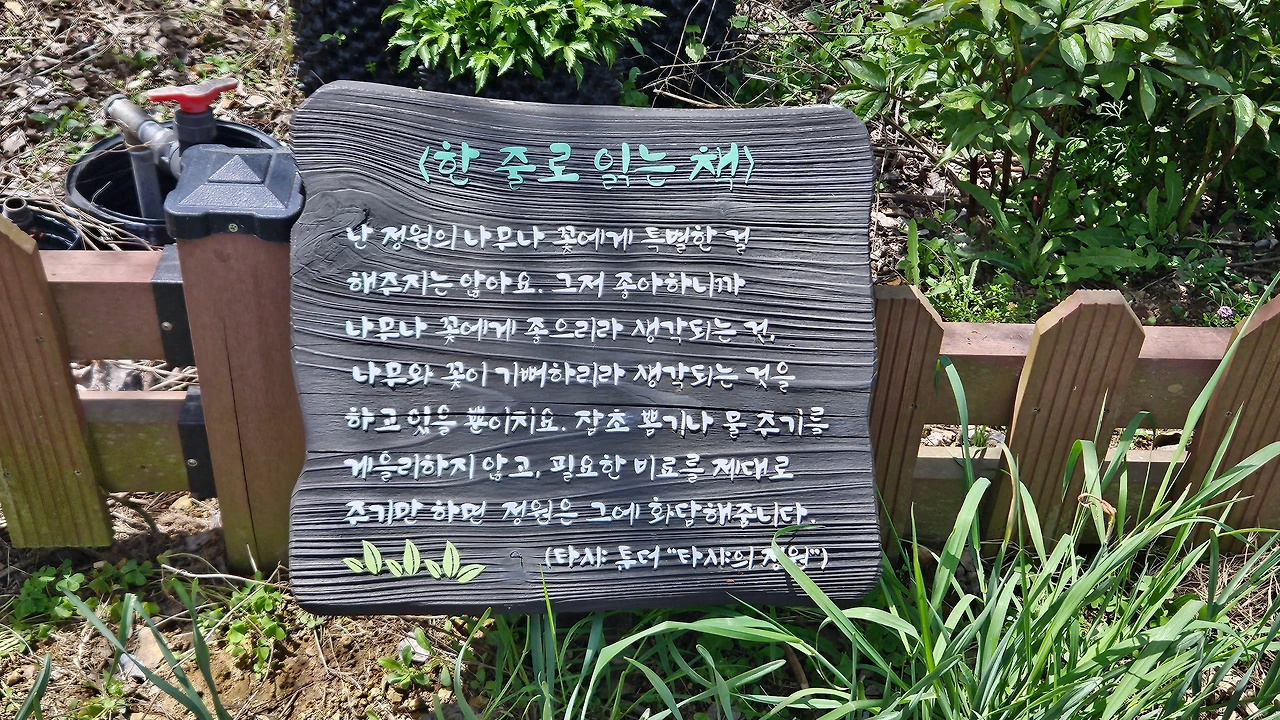 <한 줄로 읽는 책>
난 정원의 나무나 꽃에게 특별한 걸
해주지는 않아요. 그저 좋아하니까
나무나 꽃에게 좋으리라 생각되는 것,
나무와 꽃이 기뻐하리라 생각되는 것을
하고 있을 뿐이지요. 잡초 뽑기나 물 주기를
게을리하지 않고, 필요한 비료를 제대로
주기만 하면 정원은 그에 화답해줍니다.
(타샤 튜더 "타샤의 정원")